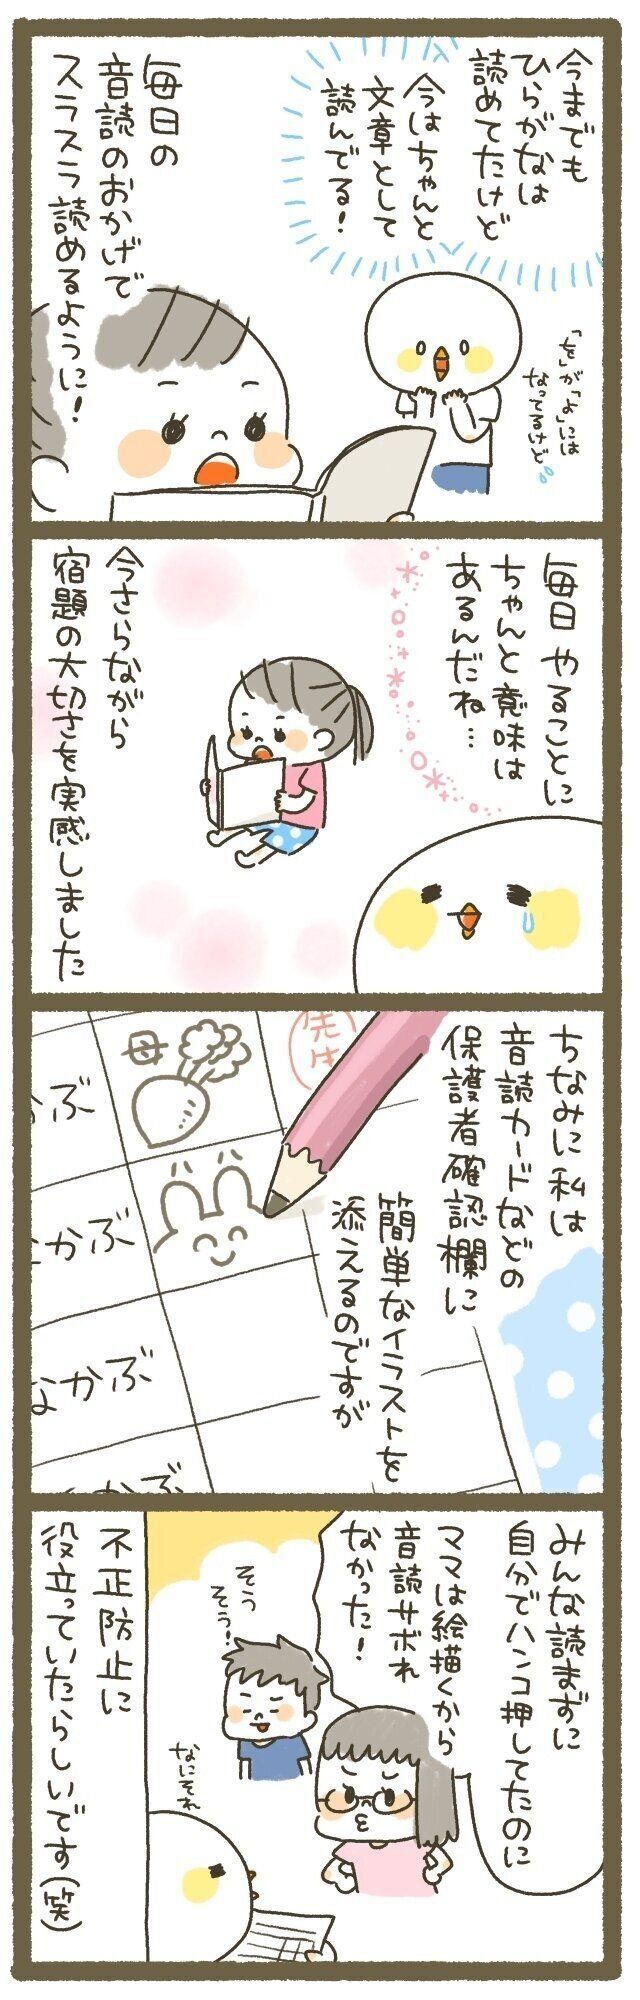 今までも
ひらがなは
読めてたけど
今はちゃんと
文章として
読んでる!
毎日の
音読のおかげで
スラスラ読めるように!
「を」が「よ」には
なってるけど
毎日やることに
ちゃんと意味は
あるんだね…
今さらながら
宿題の大切さを実感しました
ちなみに私は
音読カードなどの
保護者確認欄に
簡単なイラストを
添えるのですが
母
先生
かぶ
なかぶ
なかぶ
かぶ
みんな読まずに
自分でハンコ押してたのに
ママは絵描くから
音読サボれ
なかった!
そう
そう!
なにそれ
不正防止に
役立っていたらしいです(笑)